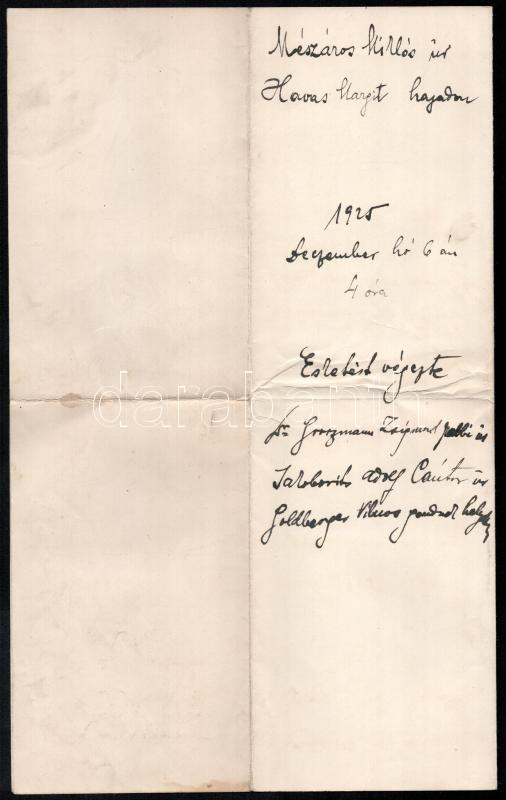 Mészáros Miklós úr
Havas Margit hajadon
1925
Deczember hó 6 án
4 óra
Esketést végezte
Dr Groszmann Zsigmond rabbi úr
Jakobovits Adolf Cántor úr
Goldberger Vilmos
darabanth